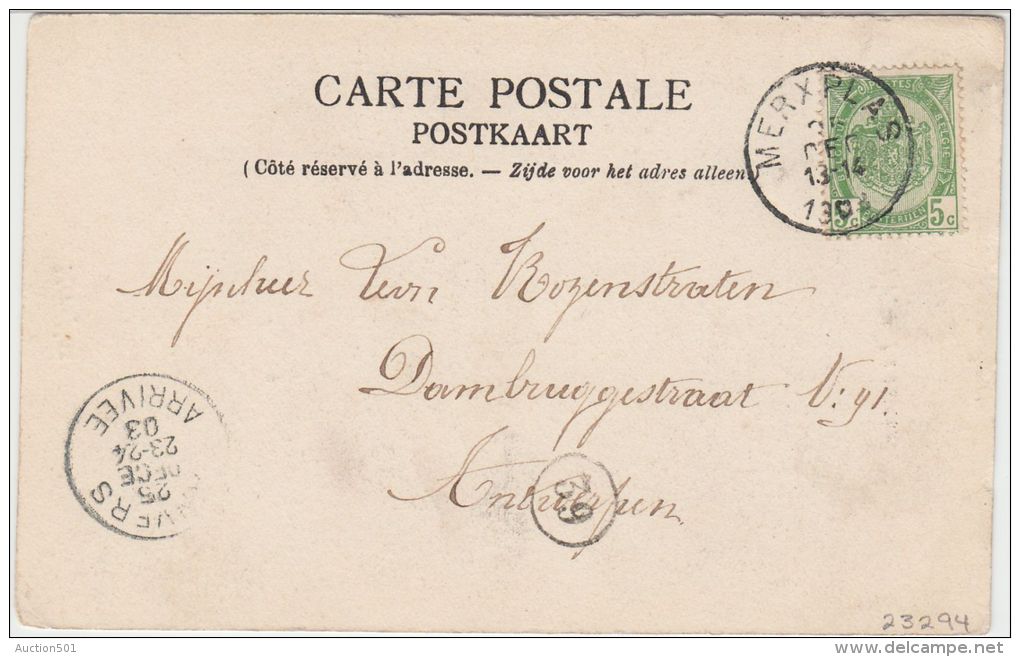 CARTE POSTALE
POSTKAART
(Côté réservé à l'adresse. — Zijde voor het adres alleen
MERXPLAS
25
DEC
13-14
1903
5c 5c
Mijnheer Leon Rozenstraten
Dambruggestraat N: 91.
Antwerpen
39
ANVERS
25
DECE
23-24
03
ARRIVEE
23294
Auction501
delcampe.net